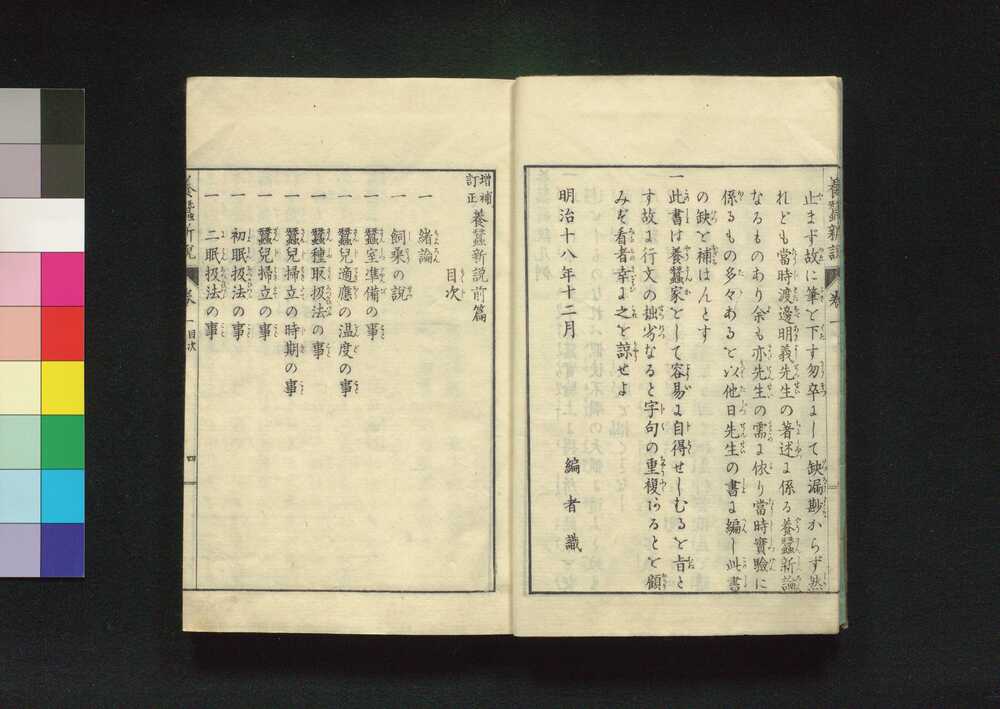 止まず故に筆を下す勿卒にして缺漏尠からず然
れども當時渡邊明義先生の著述に係る養蠶新論
なるものあり余も亦先生の需に依り當時實驗に
係るもの多々あるを以他日先生の書に編し此書
の缺を補はんとす
一此書は養蠶家をして容易に自得せしむるを旨と
す故に行文の拙劣なると字句の重複あるとを顧
みず看者幸に之を諒せよ
明治十八年十二月
編者識
養蠶新説
卷一
増補訂正養蠶新説前篇
目次
一緒論
一飼桑の說
一蠶室準備の事
一蠶兒適應の温度の事
一蠶種取扱法の事
一蠶兒掃立の時期の事
一蠶兒掃立の事
一初眠扱法の事
一二眠扱法の事
養蠶新說
卷一目次
四